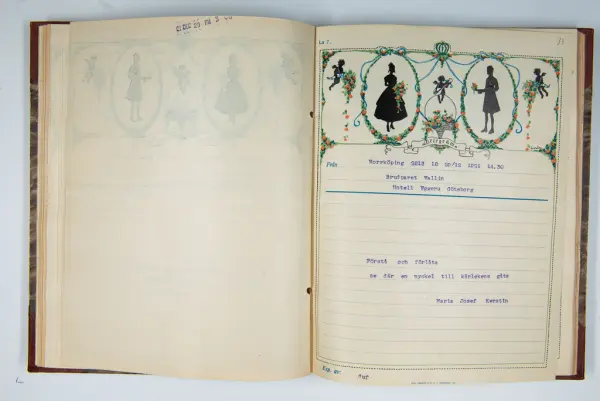 Lx 7.
Från Norrköping 2213 16 29/12 1211 14.50
Brudparet Wallin
Hotell Eggers Göteborg
Förstå och förlåta
se där en nyckel till kärlekens gåta
Maria Josef Kerstin
Exp. av